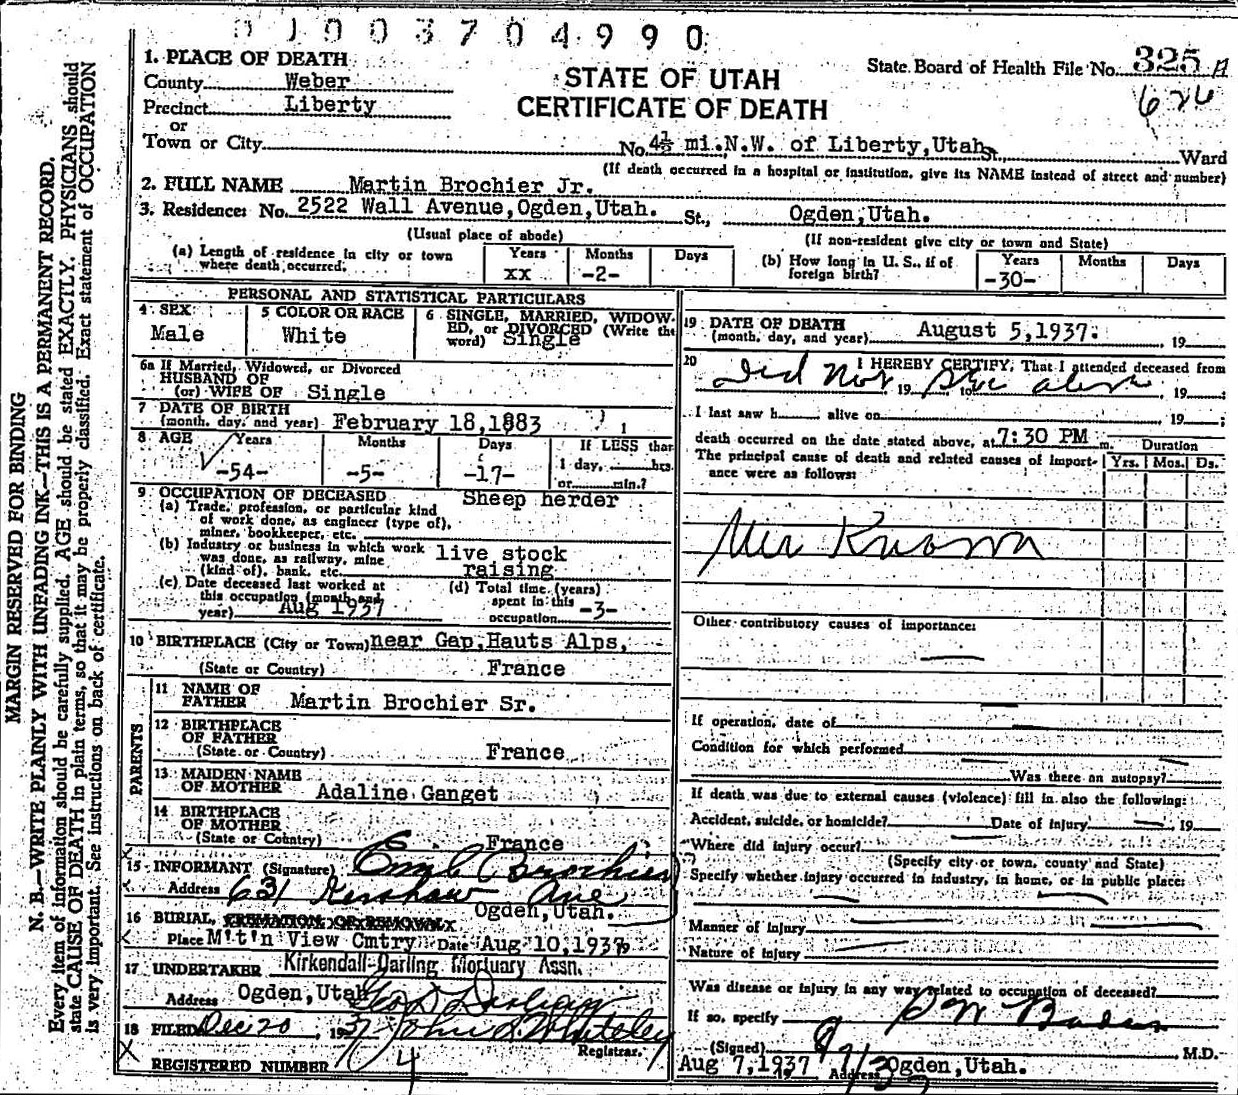 0 1 0 0 3 7 0 4 9 9 0
1. PLACE OF DEATH
County Weber
Precinct Liberty
or
Town or City
STATE OF UTAH
CERTIFICATE OF DEATH
State Board of Health File No. 325 A
626
No. 4½ mi.N.W. of Liberty,Utah St., Ward
(If death occurred in a hospital or institution, give its NAME instead of street and number)
2. FULL NAME Martin Brochier Jr.
3. Residence: No. 2522 Wall Avenue,Ogden,Utah. St., Ogden,Utah.
(Usual place of abode) (If non-resident give city or town and State)
(a) Length of residence in city or town where death occurred. Years xx Months -2- Days
(b) How long in U. S., if of foreign birth? Years -30- Months Days
PERSONAL AND STATISTICAL PARTICULARS
4 SEX
Male
5 COLOR OR RACE
White
6 SINGLE, MARRIED, WIDOWED, or DIVORCED (Write the word) Single
6a If Married, Widowed, or Divorced
HUSBAND OF
(or) WIFE OF Single
7 DATE OF BIRTH
(month, day, and year) February 18,1883
8 AGE Years -54- Months -5- Days -17-
If LESS than
1 day, hrs.
or min.?
9 OCCUPATION OF DECEASED Sheep herder
(a) Trade, profession, or particular kind
of work done, as engineer (type of),
miner, bookkeeper, etc.
(b) Industry or business in which work
was done, as railway, mine
(kind of), bank, etc. live stock raising
(c) Date deceased last worked at
this occupation (month and
year) Aug 1937
(d) Total time (years)
spent in this
occupation -3-
10 BIRTHPLACE (City or Town) near Gap,Hauts Alps,
(State or Country) France
PARENTS
11 NAME OF
FATHER Martin Brochier Sr.
12 BIRTHPLACE
OF FATHER
(State or Country) France
13 MAIDEN NAME
OF MOTHER Adaline Ganget
14 BIRTHPLACE
OF MOTHER
(State or Country) France
15 INFORMANT (Signature) Emil Brochier
Address 631 Kershaw Ave
Ogden,Utah.
16 BURIAL, CREMATION OR REMOVAL
Place M't'n View Cmtry Date Aug 10,1937
17 UNDERTAKER Kirkendall-Darling Mortuary Assn.
Address Ogden,Utah
18 FILED Dec 20, 1937 John L Whiteley
Registrar.
REGISTERED NUMBER 4
19 DATE OF DEATH
(month, day, and year) August 5,1937. 19
20 I HEREBY CERTIFY, That I attended deceased from
Did Not 19 to See alive, 19 ;
I last saw h alive on 19 ;
death occurred on the date stated above, at 7:30 PM m.
The principal cause of death and related causes of importance were as follows:
Duration
Yrs. Mos. Ds.
Un Known
Other contributory causes of importance:
If operation, date of
Condition for which performed
Was there an autopsy?
If death was due to external causes (violence) fill in also the following:
Accident, suicide, or homicide? Date of injury 19
Where did injury occur?
(Specify city or town, county and State)
Specify whether injury occurred in industry, in home, or in public place:
Manner of injury
Nature of injury
Was disease or injury in any way related to occupation of deceased?
If so, specify
(Signed) M.D.
Aug 7,1937 Address Ogden,Utah.
MARGIN RESERVED FOR BINDING
N. B.—WRITE PLAINLY WITH UNFADING INK—THIS IS A PERMANENT RECORD.
Every item of information should be carefully supplied. AGE should be stated EXACTLY. PHYSICIANS should
state CAUSE OF DEATH in plain terms, so that it may be properly classified. Exact statement of OCCUPATION
is very important. See instructions on back of certificate.